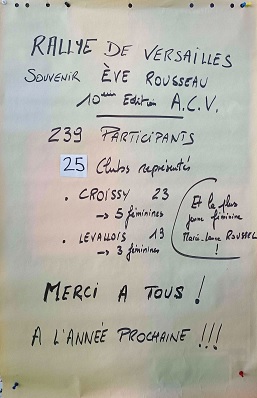 RALLYE DE VERSAILLES
SOUVENIR ÈVE ROUSSEAU
10ème Edition A.C.V.
239 PARTICIPANTS
25 Clubs représentés
. CROISSY 23
→ 5 féminines
. LEVALLOIS 19
→ 3 féminines
Et la plus
jeune féminine
Marie-Laure ROUSSEL
!
MERCI A TOUS !
A L'ANNÉE PROCHAINE !!!